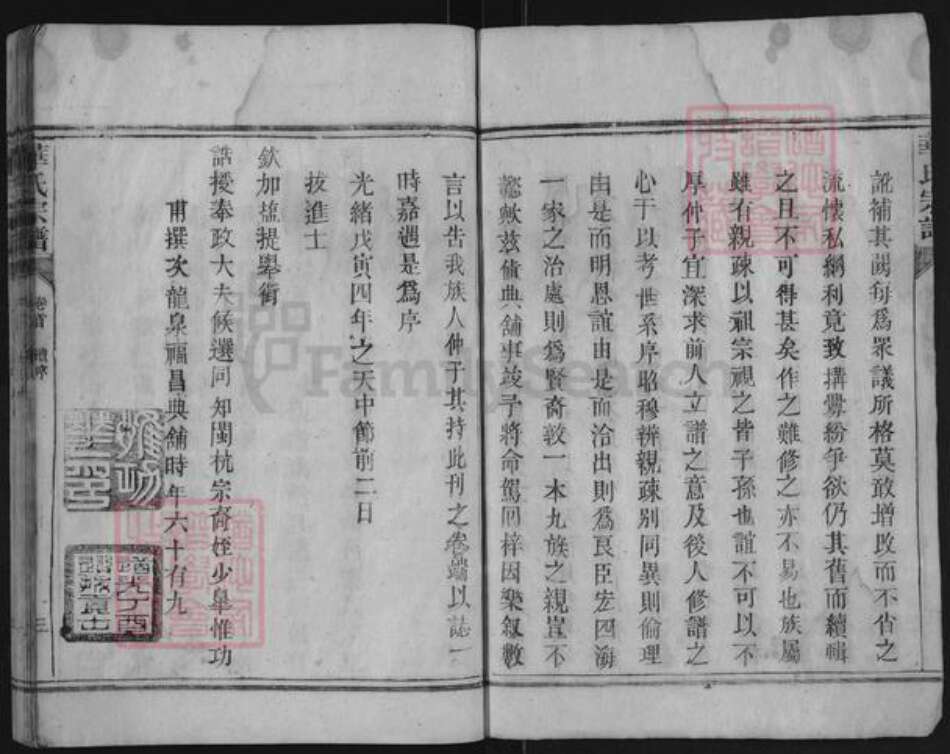 訛補其闕每為眾議所格莫敢增改而不省之
流懷私網利竟致搆釁紛爭欲仍其舊而續輯
之且不可得甚矣作之難修之亦不易也族屬
雖有親疎以祖宗視之皆子孫也誼不可以不
厚仲子宜深求前人立譜之意及後人修譜之
心于以考世系序昭穆辨親疎别同異則倫理
由是而明恩誼由是而洽出則為良臣宏四海
一家之治處則為賢裔敦一本九族之親豈不
懿歟茲值典舖事竣予將命駕回梓因樂叙數
言以告我族人仲子其持此刊之卷端以誌一
時嘉遇是為序
光緒戊寅四年之天中節前二日
拔進士
欽加鹽提舉銜
誥授奉政大夫候選同知閩杭宗裔姪少皐惟功
甫撰次龍泉福昌典舖時年六十有九
華氏宗譜
卷首
三
華氏宗譜
惟功
道光丁酉
FamilySearch